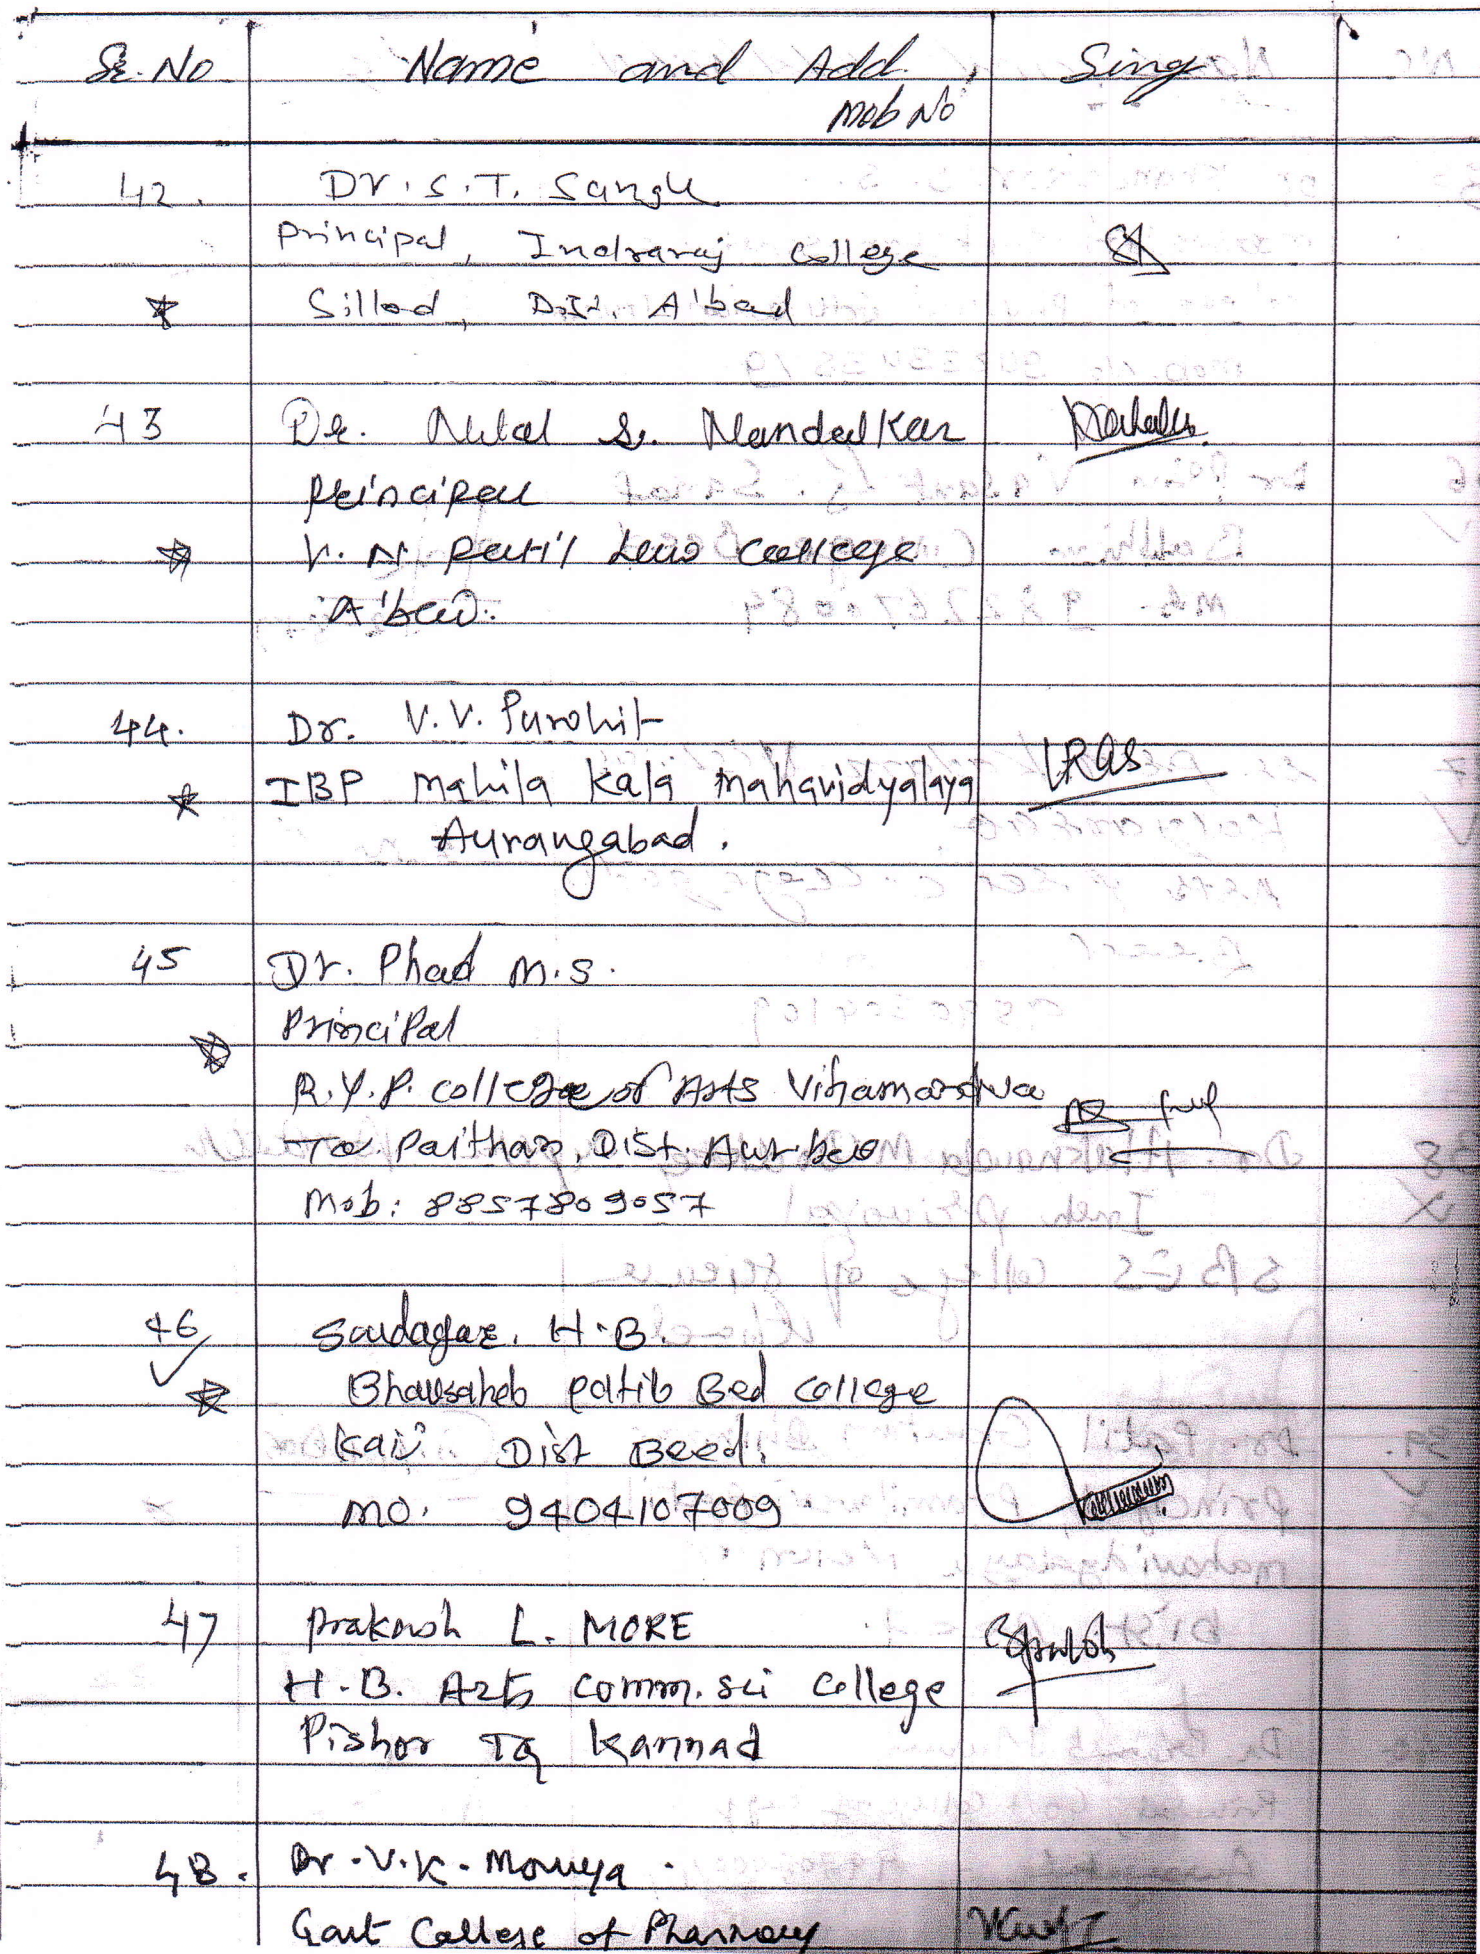 Sr. No Name and Add. , Sing
Mob No
42. Dr. S. T. Sangle
Principal, Indraraj College
Sillod, Dist. A'bad
43 Dr. S. Nandedkar
Principal
V. N. Patil Law College
A'bad.
44. Dr. V. V. Purohit
IBP Mahila Kala Mahavidyalaya
Aurangabad.
45 Dr. Phad M.S.
Principal
R.Y.P. College of Arts
Tq Paithan, Dist. Aur.bad
Mob: 8857809057
46 Saudagar. H.B.
Bhausaheb Patil Bed College
Kaij Dist Beed.
MO. 9404107009
47 Prakash L. MORE
H.B. Arts Comm. Sci College
Pishor Tq Kannad
48. Dr. V.K. Mourya.
Govt College of Pharmacy